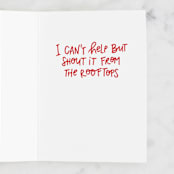 I CAN'T HELP BUT
SHOUT IT FROM
THE ROOFTOPS